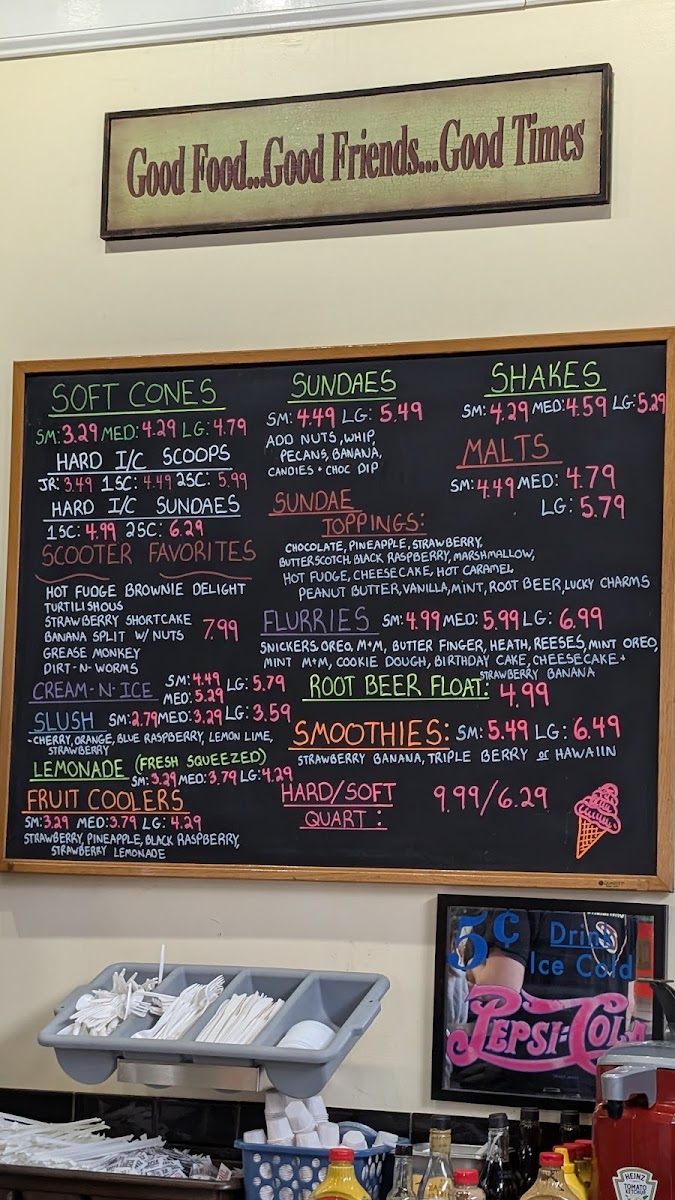 Good Food...Good Friends...Good Times
SOFT CONES
SM: 3.29 MED: 4.29 LG: 4.79
HARD I/C SCOOPS
JR: 3.49 1SC: 4.49 2SC: 5.99
HARD I/C SUNDAES
1SC: 4.99 2SC: 6.29
SCOOTER FAVORITES
HOT FUDGE BROWNIE DELIGHT
TURTILISHOUS
STRAWBERRY SHORTCAKE
BANANA SPLIT W/ NUTS 7.99
GREASE MONKEY
DIRT-N-WORMS
CREAM-N-ICE SM: 4.49 LG: 5.79
MED: 5.29
SLUSH SM: 2.79 MED: 3.29 LG: 3.59
-CHERRY, ORANGE, BLUE RASPBERRY, LEMON LIME,
STRAWBERRY
LEMONADE (FRESH SQUEEZED)
SM: 3.29 MED: 3.79 LG: 4.29
FRUIT COOLERS
SM: 3.29 MED: 3.79 LG: 4.29
STRAWBERRY, PINEAPPLE, BLACK RASPBERRY,
STRAWBERRY LEMONADE
SUNDAES
SM: 4.49 LG: 5.49
ADD NUTS, WHIP,
PECANS, BANANA,
CANDIES + CHOC DIP
SHAKES
SM: 4.29 MED: 4.59 LG: 5.29
MALTS
SM: 4.49 MED: 4.79
LG: 5.79
SUNDAE
TOPPINGS:
CHOCOLATE, PINEAPPLE, STRAWBERRY,
BUTTERSCOTCH, BLACK RASPBERRY, MARSHMALLOW,
HOT FUDGE, CHEESECAKE, HOT CARAMEL
PEANUT BUTTER, VANILLA, MINT, ROOT BEER, LUCKY CHARMS
FLURRIES SM: 4.99 MED: 5.99 LG: 6.99
SNICKERS, OREO, M+M, BUTTER FINGER, HEATH, REESES, MINT OREO,
MINT M+M, COOKIE DOUGH, BIRTHDAY CAKE, CHEESECAKE +
STRAWBERRY BANANA
ROOT BEER FLOAT: 4.99
SMOOTHIES: SM: 5.49 LG: 6.49
STRAWBERRY BANANA, TRIPLE BERRY or HAWAIIN
HARD/SOFT 9.99/6.29
QUART:
5¢ Drink
Ice Cold
PEPSI-Cola
HEINZ
TOMATO
KETCHUP